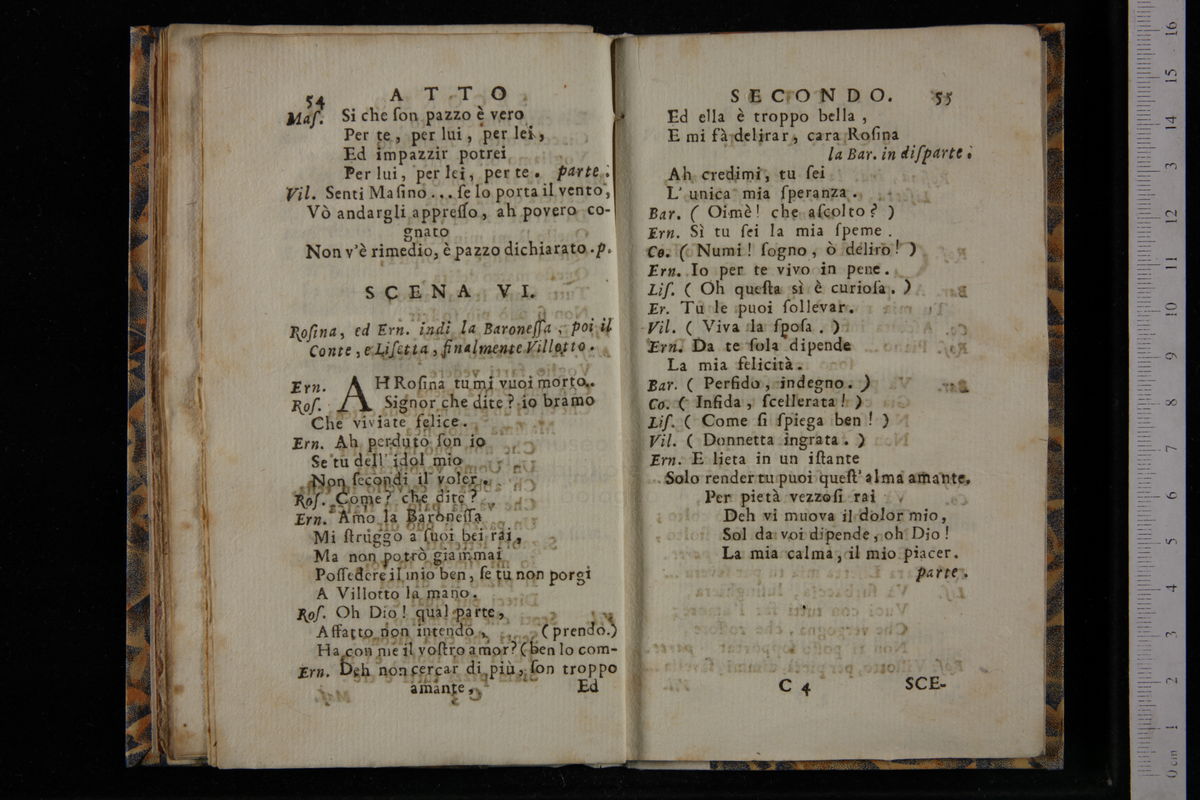 54 ATTO
Maſ. Si che ſon pazzo è vero
Per te, per lui, per lei,
Ed impazzir potrei
Per lui, per lei, per te. parte.
Vil. Senti Maſino... ſe lo porta il vento,
Vò andargli appreſſo, ah povero co-
gnato
Non v'è rimedio, è pazzo dichiarato. p.
SCENA VI.
Roſina, ed Ern. indi la Baroneſſa, poi il
Conte, e Liſetta, finalmente Villotto.
Ern. AH Roſina tu mi vuoi morto.
Roſ. Signor che dite? io bramo
Che viviate felice.
Ern. Ah perduto ſon io
Se tu dell' idol mio
Non ſecondi il voler.
Roſ. Come? che dite?
Ern. Amo la Baroneſſa
Mi ſtruggo a ſuoi bei rai,
Ma non potrò giammai
Poſſedere il mio ben, ſe tu non porgi
A Villotto la mano.
Roſ. Oh Dio! qual parte,
Affatto non intendo, (prendo.)
Ha con me il voſtro amor? (ben lo com-
Ern. Deh non cercar di più, ſon troppo
amante, Ed
SECONDO. 55
Ed ella è troppo bella,
E mi fà delirar, cara Roſina
la Bar. in diſparte.
Ah credimi, tu ſei
L' unica mia ſperanza.
Bar. ( Oimè! che aſcolto? )
Ern. Sì tu ſei la mia ſpeme.
Co. ( Numi! ſogno, ò deliro! )
Ern. Io per te vivo in pene.
Liſ. ( Oh queſta sì è curioſa. )
Er. Tu le puoi ſollevar.
Vil. ( Viva la ſpoſa. )
Ern. Da te ſola dipende
La mia felicità.
Bar. ( Perfido, indegno. )
Co. ( Infida, ſcellerata! )
Liſ. ( Come ſi ſpiega ben! )
Vil. ( Donnetta ingrata. )
Ern. E lieta in un iſtante
Solo render tu puoi queſt' alma amante.
Per pietà vezzoſi rai
Deh vi muova il dolor mio,
Sol da voi dipende, oh Dio!
La mia calma, il mio piacer.
parte.
C 4 SCE-
0 cm 1 2 3 4 5 6 7 8 9 10 11 12 13 14 15 16